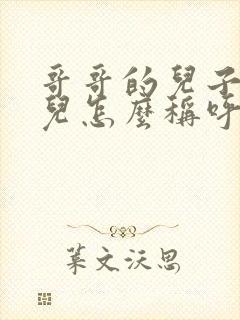 哥哥的兒子
兒怎麼稱呼
葉文沃思